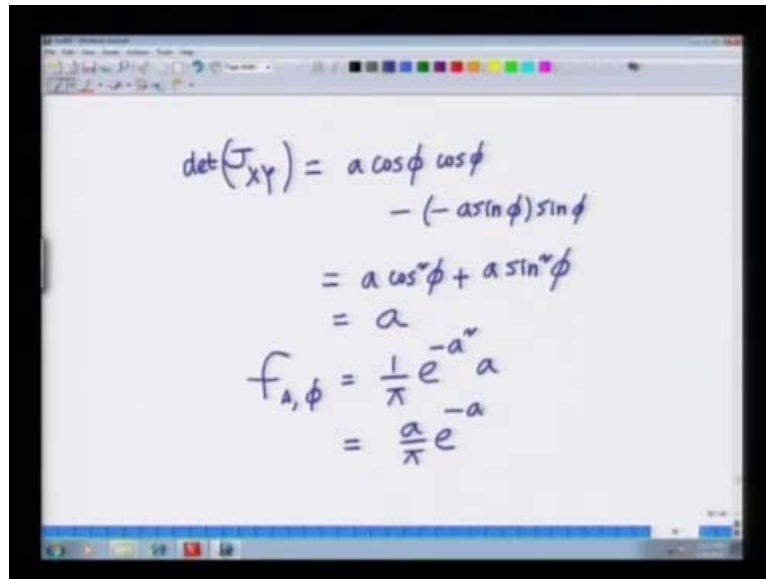 det(J_XY) = a cosϕ cosϕ
- (- a sin ϕ) sin ϕ
= a cos²ϕ + a sin²ϕ
= a
f_A,ϕ = 1/π e^-a² a
= a/π e^-a